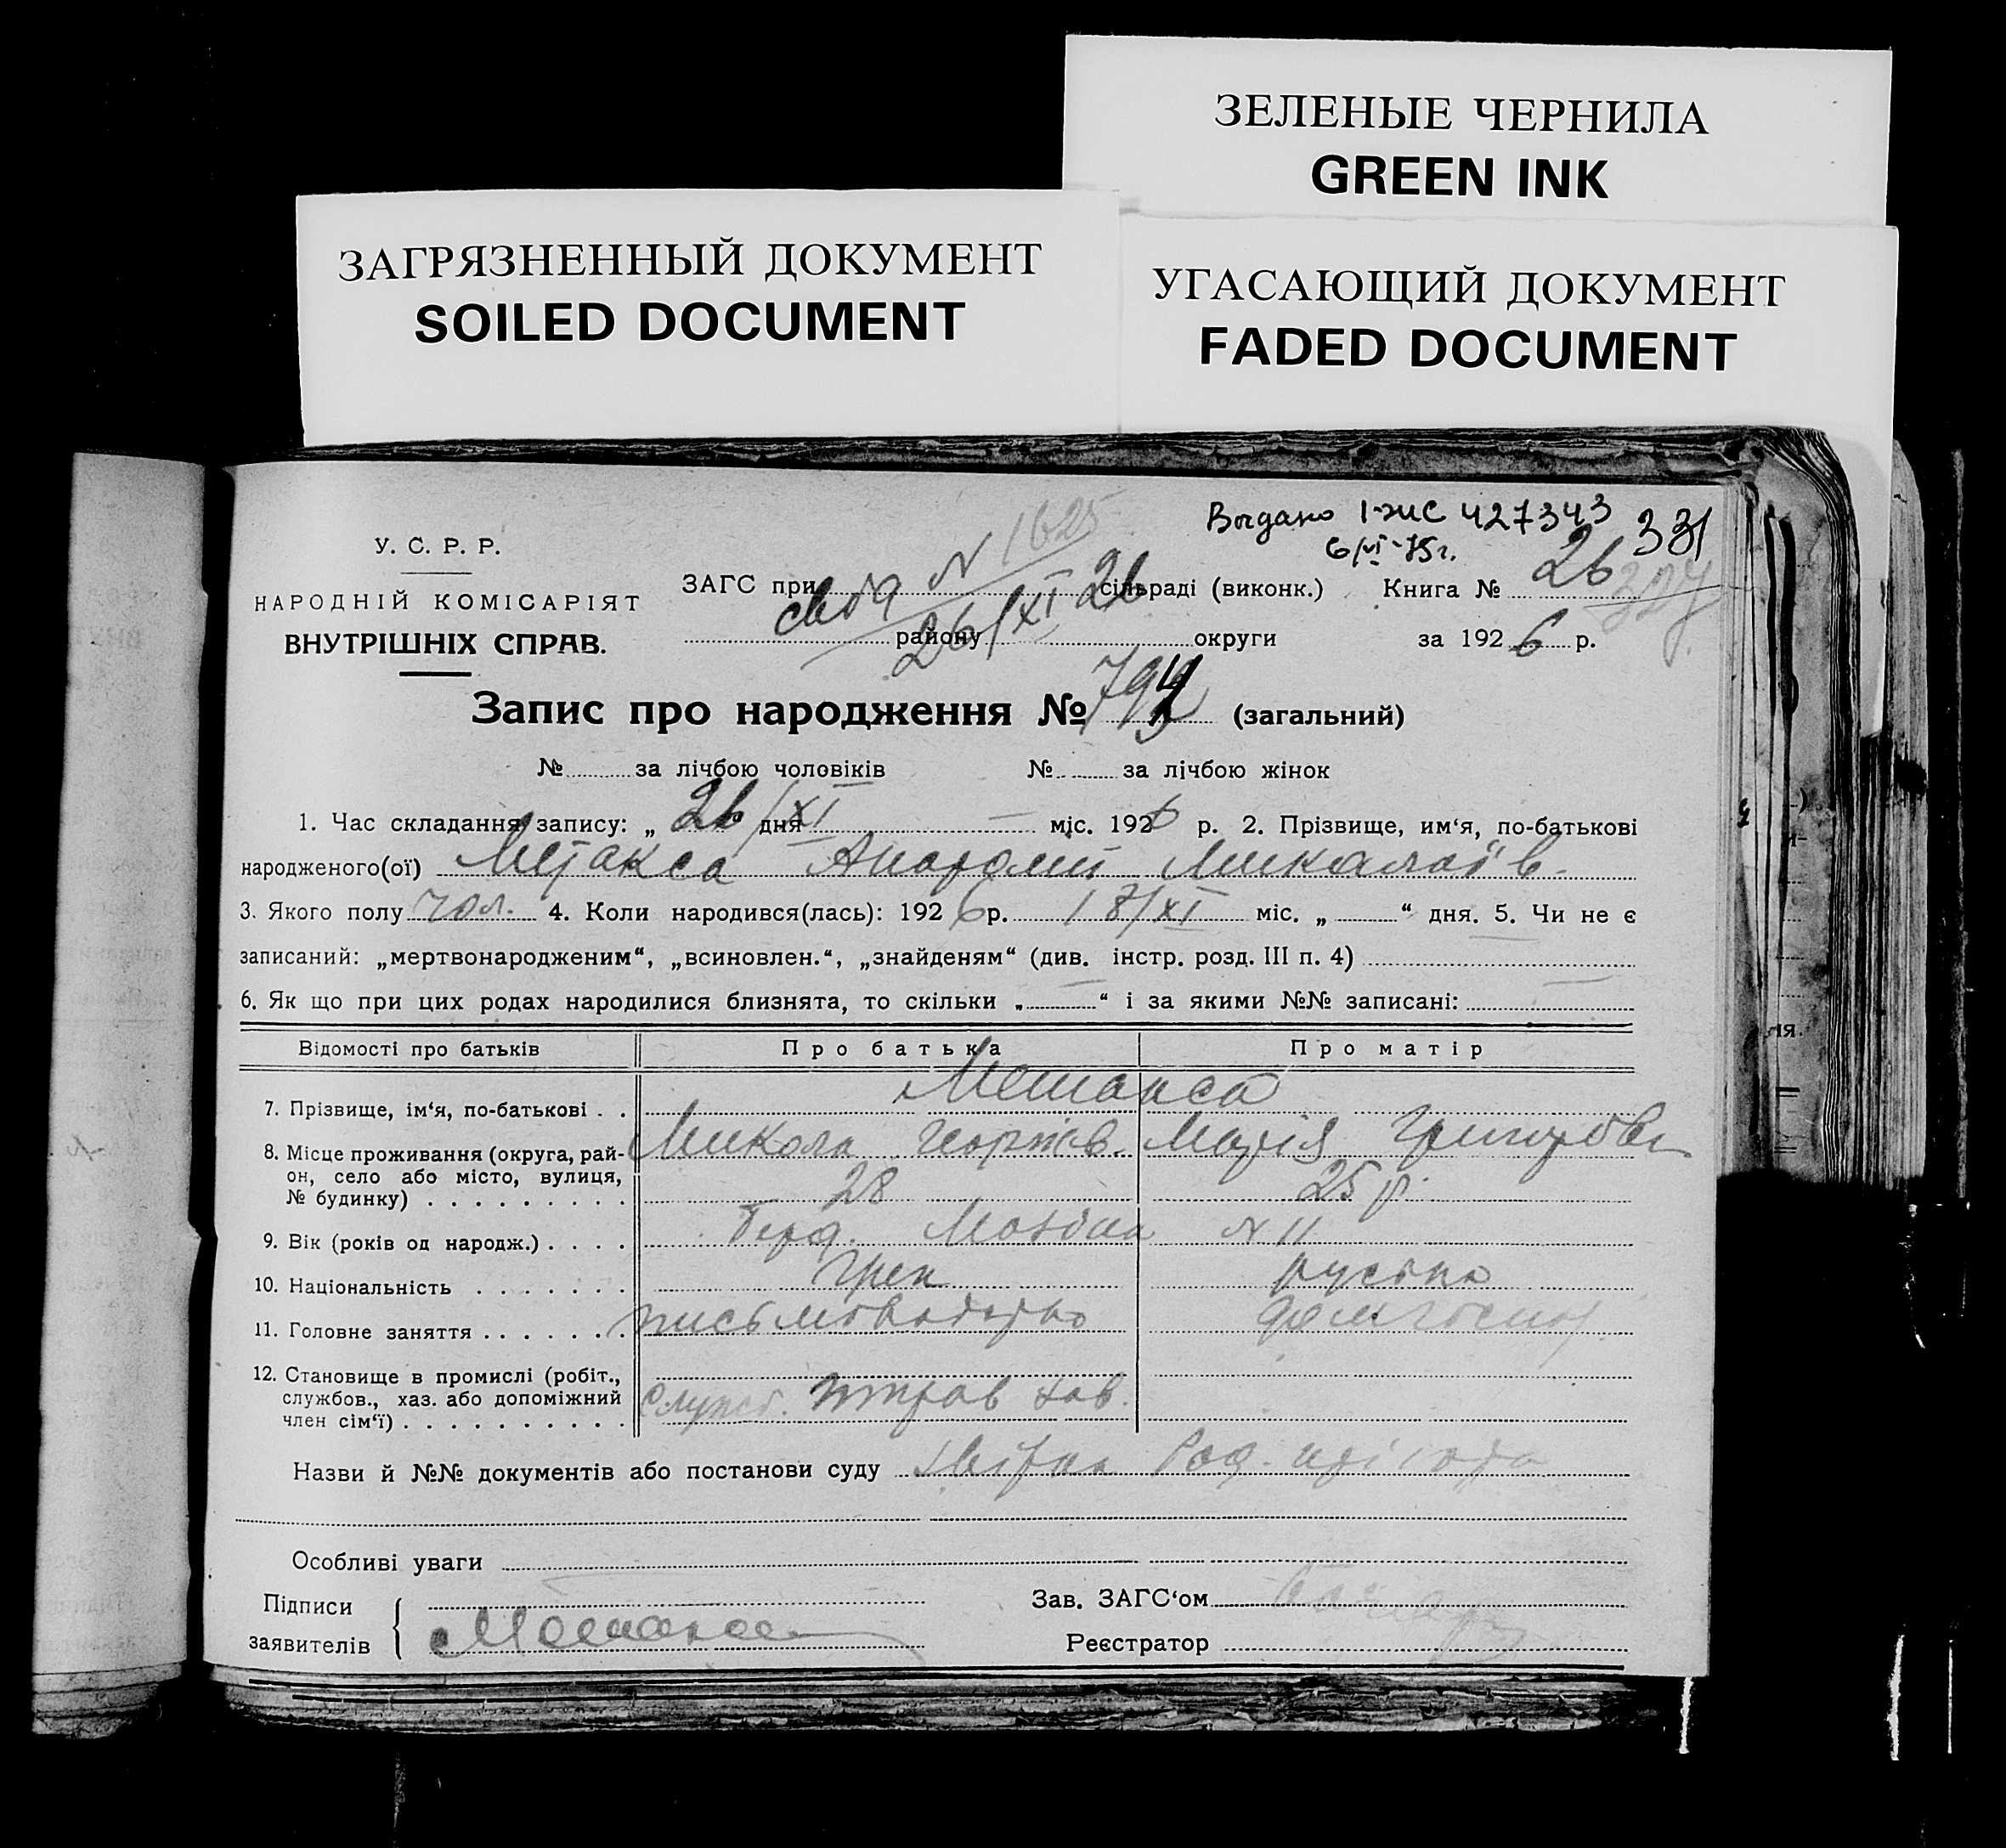 ЗЕЛЕНЫЕ ЧЕРНИЛА
GREEN INK
ЗАГРЯЗНЕННЫЙ ДОКУМЕНТ
SOILED DOCUMENT
УГАСАЮЩИЙ ДОКУМЕНТ
FADED DOCUMENT
Выдано I-ЖС 427343
6/VI-75г.
331
У. С. Р. Р.
НАРОДНІЙ КОМІСАРІЯТ
ВНУТРІШНІХ СПРАВ.
N 1625
26/XI 26
ЗАГС при сільраді (виконк.) Книга № 26
району округи за 1926 р.
Запис про народження № 794 (загальний)
№ за лічбою чоловіків № за лічбою жінок
1. Час складання запису: „ 26/XI дня міс. 1926 р. 2. Прізвище, им‘я, по-батькові
народженого(ої) Метакса Анатолий Миколаїв.
3. Якого полу чол. 4. Коли народився(лась): 1926 р. 18/XI міс. „ “ дня. 5. Чи не є
записаний: „мертвонародженим“, „всиновлен.“, „знайденям“ (див. інстр. розд. III п. 4)
6. Як що при цих родах народилися близнята, то скільки „ “ і за якими №№ записані:
Відомості про батьків Про батька Про матір
7. Прізвище, ім‘я, по-батькові . . Метакса
8. Місце проживання (округа, рай- Микола Георгієв. Марія Григорівн
он, село або місто, вулиця,
№ будинку) . . . . . . . . . 28 25 р.
9. Вік (років од народж.) . . . . N 11
10. Національність . . . . . . . Грек руська
11. Головне заняття . . . . . . . письмоводство дом госпо
12. Становище в промислі (робіт.,
службов., хаз. або допоміжний службов.
член сім‘ї) . . . . . . . . . .
Назви й №№ документів або постанови суду
Особливі уваги
Підписи Зав. ЗАГС‘ом
заявителів Метакса Реєстратор